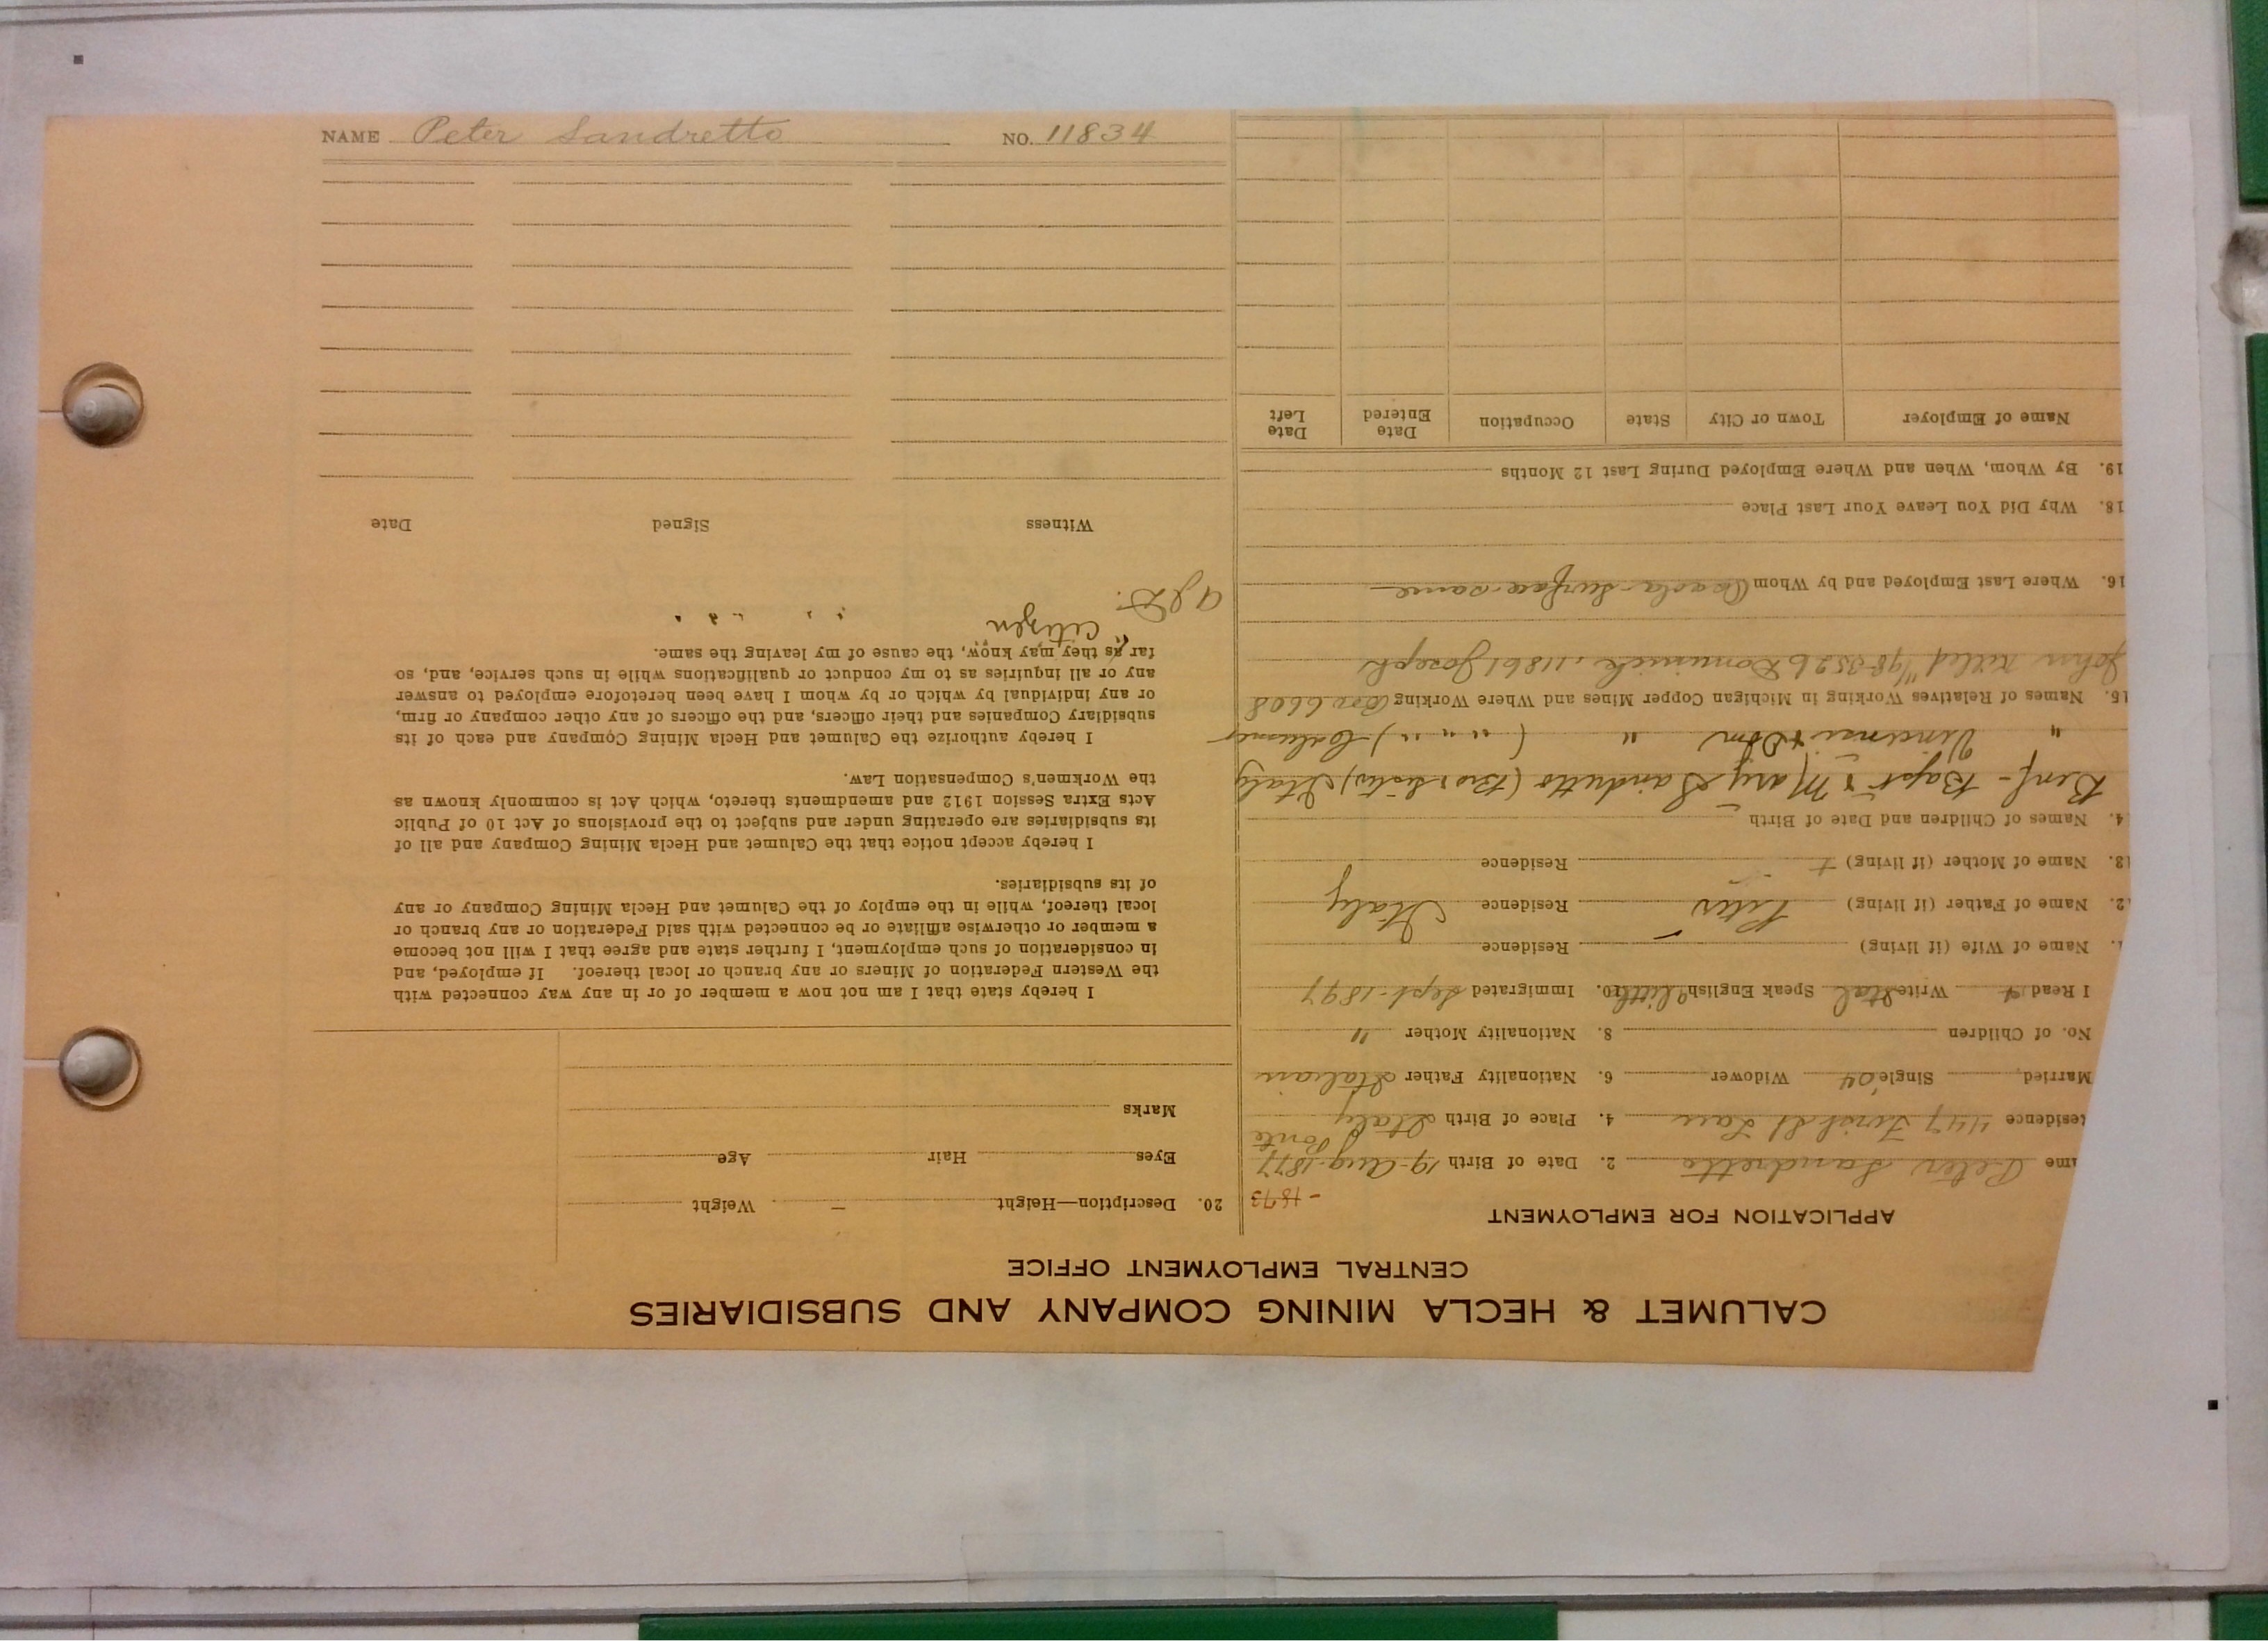 NAME Peter Sandretto NO. 11834
CALUMET & HECLA MINING COMPANY AND SUBSIDIARIES
CENTRAL EMPLOYMENT OFFICE
APPLICATION FOR EMPLOYMENT
- 1873
ame Peter Sandretto 2. Date of Birth 19-Aug-1877
Residence 447 St Lau 4. Place of Birth Italy
Ponte
Married, Single 04 Widower 6. Nationality Father Italian
No. of Children 8. Nationality Mother "
I Read Write Ital Speak English little 10. Immigrated Sept-1897
1. Name of Wife (if living) Residence
12. Name of Father (if living) Peter Residence Italy
13. Name of Mother (if living) Residence
14. Names of Children and Date of Birth
Benf- Bapt & Mary Sandretto (Bro & Sister) Italy
" Vincenzi & Dom " ( " " " ) Calumet
15. Names of Relatives Working in Michigan Copper Mines and Where Working 6608
John Killed Dominick, 11861 Joseph
16. Where Last Employed and by Whom Osceola-Surface-same
18. Why Did You Leave Your Last Place
19. By Whom, When and Where Employed During Last 12 Months
Name of Employer Town or City State Occupation Date Entered Date Left
20. Description—Height Weight
Eyes Hair Age
Marks
I hereby state that I am not now a member of or in any way connected with
the Western Federation of Miners or any branch or local thereof. If employed, and
in consideration of such employment, I further state and agree that I will not become
a member or otherwise affiliate or be connected with said Federation or any branch or
local thereof, while in the employ of the Calumet and Hecla Mining Company or any
of its subsidiaries.
I hereby accept notice that the Calumet and Hecla Mining Company and all of
its subsidiaries are operating under and subject to the provisions of Act 10 of Public
Acts Extra Session 1912 and amendments thereto, which Act is commonly known as
the Workmen's Compensation Law.
I hereby authorize the Calumet and Hecla Mining Company and each of its
subsidiary Companies and their officers, and the officers of any other company or firm,
or any individual by which or by whom I have been heretofore employed to answer
any or all inquiries as to my conduct or qualifications while in such service, and, so
far as they may know, the cause of my leaving the same.
Citizen
Witness Signed Date